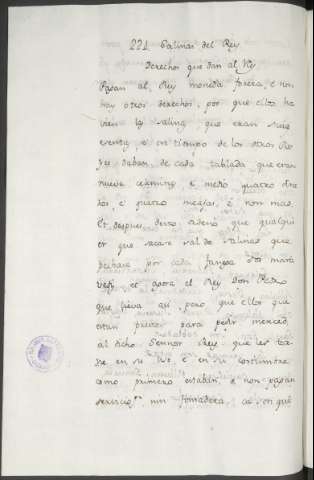 221 Salinas del Rey
Derechos que dan al Rey
Pagan al Rey moneda forera, é non
hay otros derechos, por que ellos ha
vien las salinas, que eran suas
é en tiempo de los otros Re
yes daban de cada tablada, que eran
nueve celemines é medio quatro dine
ros, é quatro meajas, é non mas.
Et despues que qualqui
er que sacase sal de Salinas que
pechase por cada fanega dos mara
vedis, et agora el Rey Don Pedro
que lieva asi, pero que ellos que
estan prestos para pedir merced
al dicho Sennor Rey, que les to
me en su é en su costumbre
como primero estaban, é non pagan
servicios nin fonsadera, ca son que